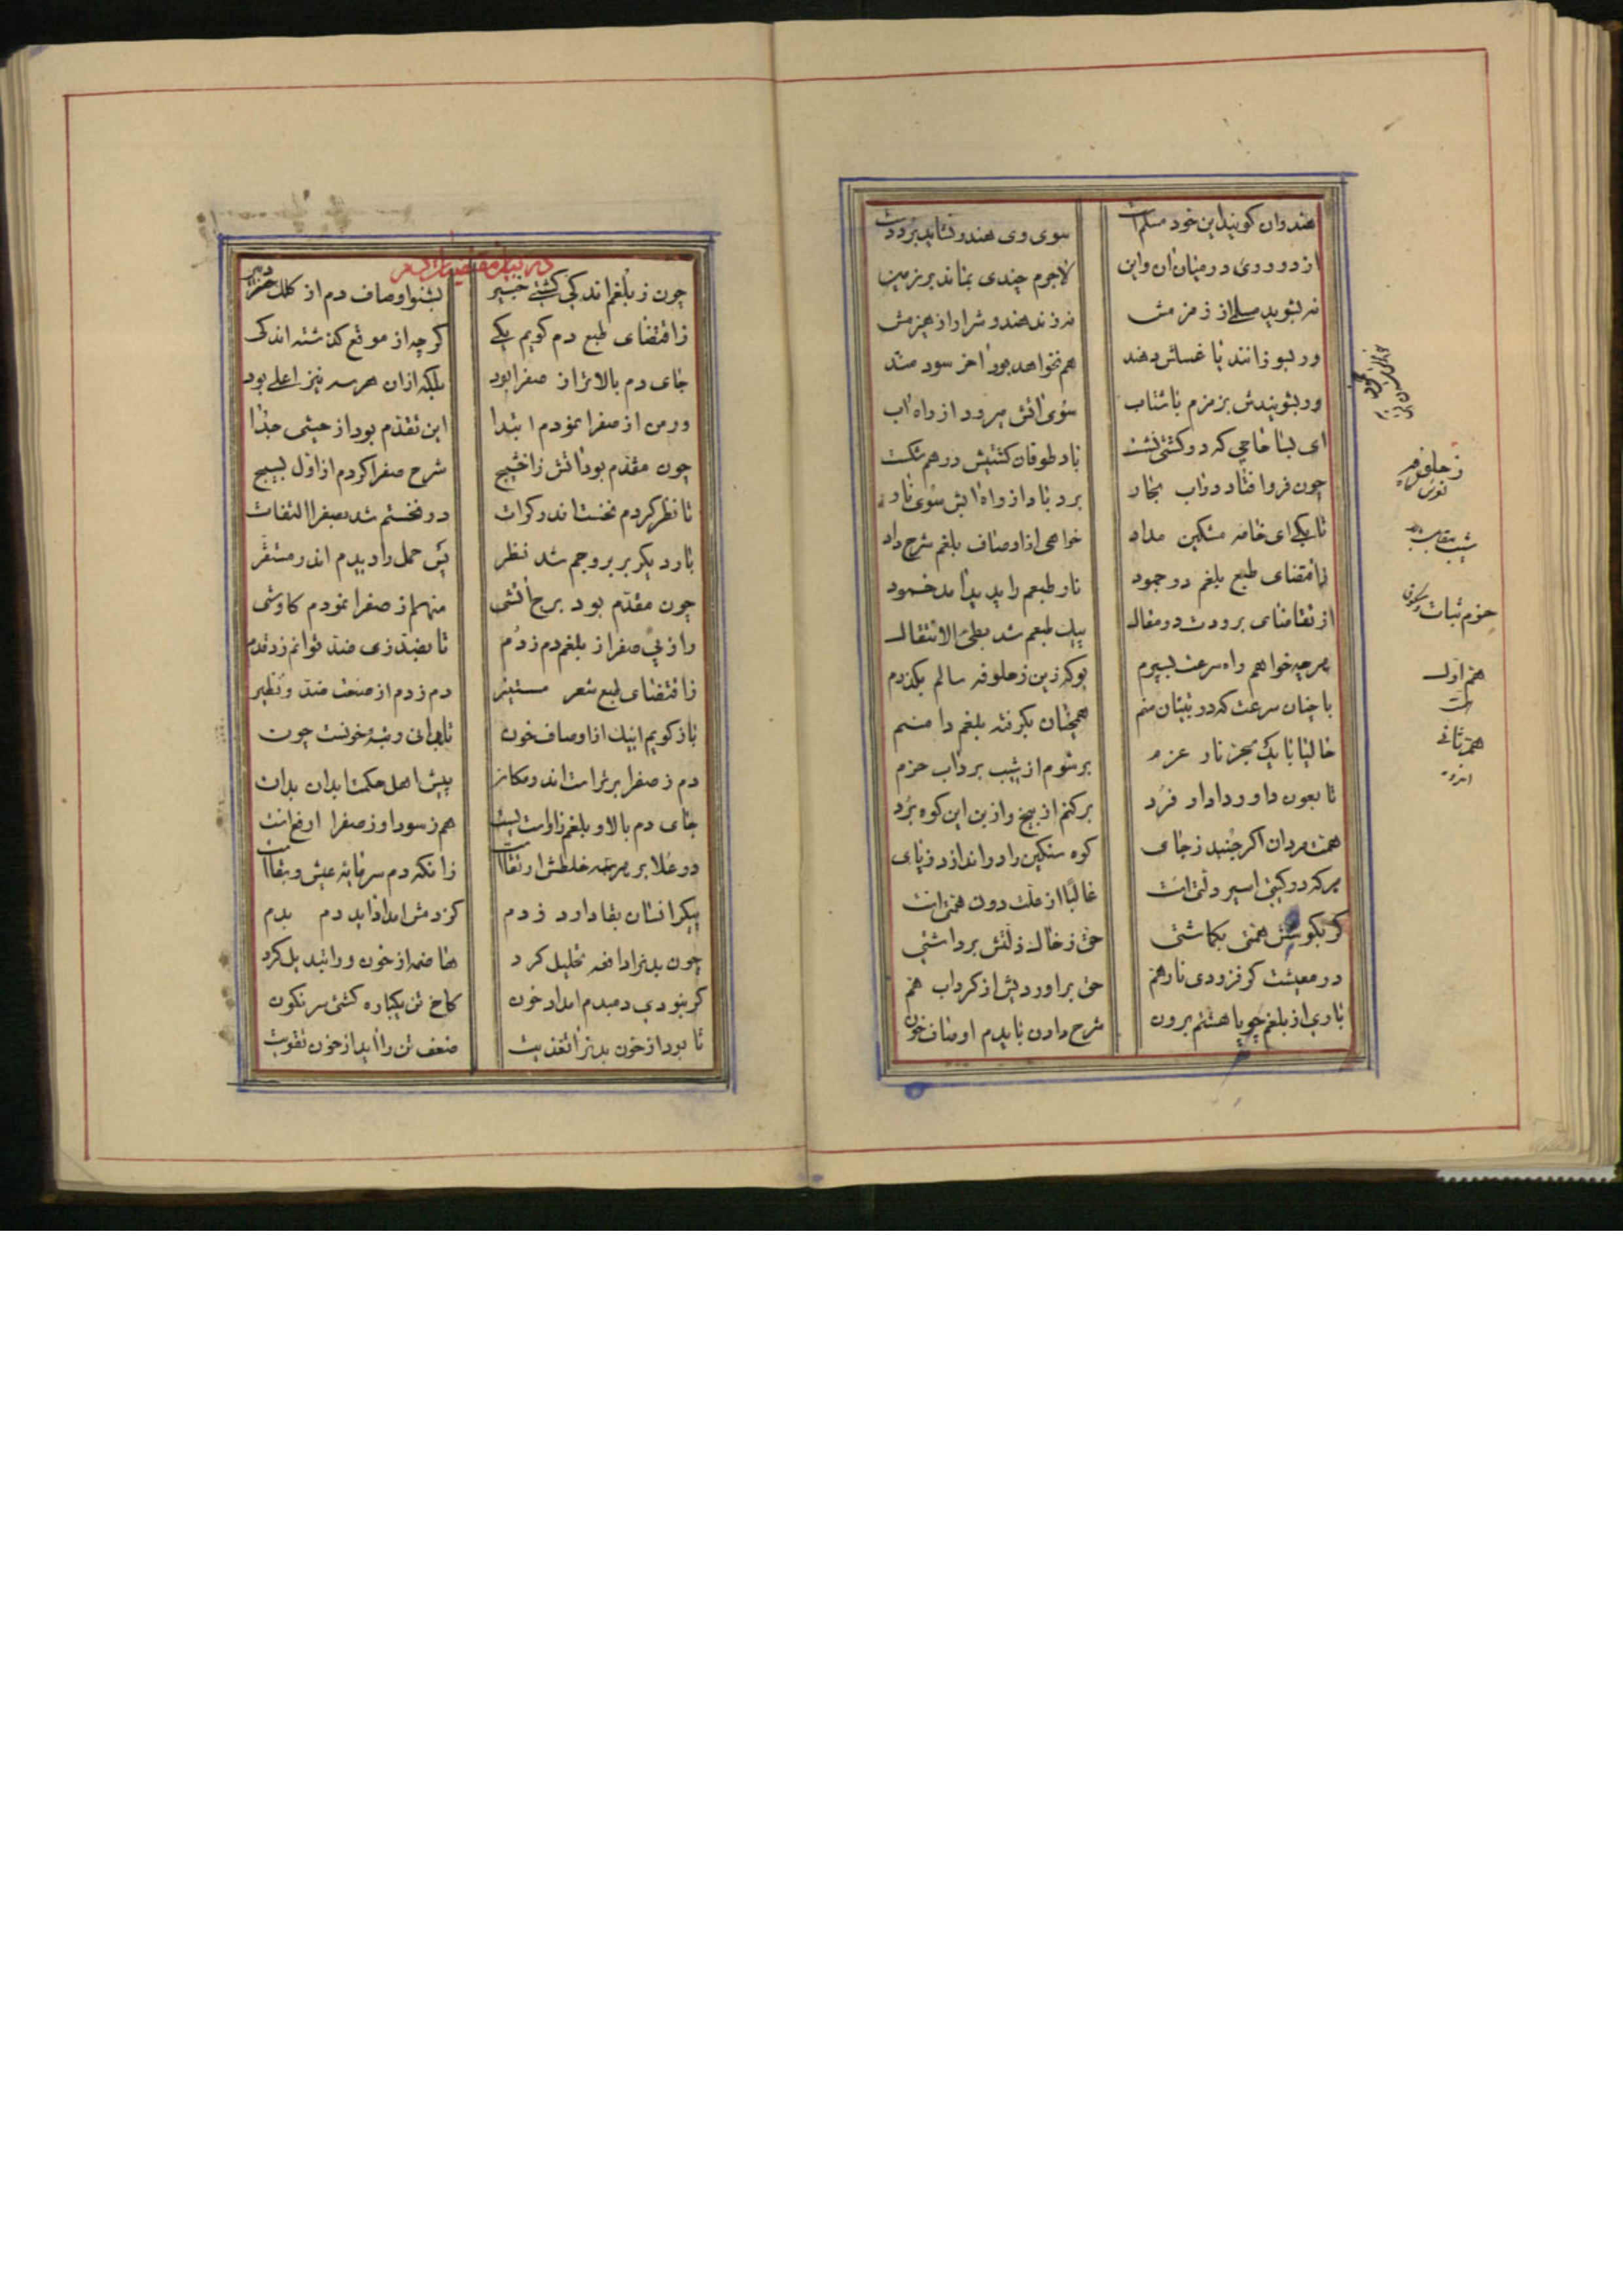 هندوان کویند این خود مسلم است
سوی وی هندو نشاید برد دست
از دو روی در میان ان واین
لاجرم چندی بماند بر زمین
نه بشوید مسلی از زمزمش
نه زند هندو شرار از هیزمش
ور بسوزانند یا غسلش دهند
هم نخواهد بود اخر سودمند
ور بشویندش بزمزم باشتاب
سوی اتش میرود از راه اب
ای بسا حاجی که در کشتی نشست
باد طوفان کشتیش در هم شکست
چون فرو افتاد در اب بحار
برد باد از راه ابش سوی نار
تا بکی ای خامه مشکین مداد
خواهی از اوصاف بلغم شرح داد
ز اقتضای طبع بلغم در جمود
نار طبعم را پدید امد خمود
از تقاضای برودت در مقال
پیک طبعم شد بطیء الانتقال
هرچه خواهم راه سرعت بسپرم
بو که زین زحلوفه سالم بکذرم
با چنان سرعت که در بنیان منم
همچنان بکرفته بلغم دامنم
حالیا با یک بحر نار عزم
برشوم از شیب بر داب حزم
تا بعون داور دادار فرد
برکنم از بیخ و از بن این کوه برد
همت مردان اکر جنبد ز جای
کوه سنکین را در اندازد ز پای
هرکه در کیتی اسیر ذلتی است
غالبا از علت دون همتی است
کر بکوشش همتی بکماشتی
حق ز خاک ذلتش برداشتی
در معیشت کر فزودی نار هم
حق براوردیش از کرداب هم
باری از بلغم چو پا هشتم برون
شرح دادن بایدم اوصاف خون
زحلوفه
لغزش
حزم ثبات و سکون
هم اول
همت
هم ثانی
اندوه
در بیان مقتضیات دم
چون ز بلغم اندکی کشتی خبیر
بشنو اوصاف دم از کلک دبیر
ز اقتضای طبع دم کویم یکی
کرچه از موقع کذشته اندکی
جای دم بالاتر از صفرا بود
بلکه از ان هر سه نیز اعلی بود
ور من از صفرا نمودم ابتدا
این تقدم بود از حیثی جدا
چون مقدم بود اتش ز اخشیج
شرح صفرا کردم از اول بسیج
تا نظر کردم نخست اندر کرات
در نخستم شد بصفرا التفات
بار دیکر بر بروجم شد نظر
پس حمل را دیدم اندر مستقر
چون مقدم بود برج اتشی
منهم از صفرا نمودم کاوشی
واز پی صفرا ز بلغم دم زدم
تا بضد ذی ضد توانم زد قدم
ز اقتضای طبع شعر مستنیر
دم زدم از صنعت ضد و نظیر
باز کویم اینک از اوصاف خون
تا بدانی رتبهٔ خونست چون
دم ز صفرا برتر است اندر مکان
پیش اهل حکمت ابدان بدان
جای دم بالا و بلغم ز اوست پست
هم ز سودا و ز صفرا ارفع است
در علا بر هرسه خلطش ارتقاست
زانکه دم سرمایه عیش و بقاست
پیکر انسان بقا دارد ز دم
کز دمش امداد اید دم بدم
چون بدنرا دافعه تحلیل کرد
هاضمه از خون ورا تبدیل کرد
کر نبودی دمبدم امداد خون
کاخ تن یکباره کشتی سرنکون
تا بود از خون بدنرا تغذیت
ضعف تن را اید از خون تقویت